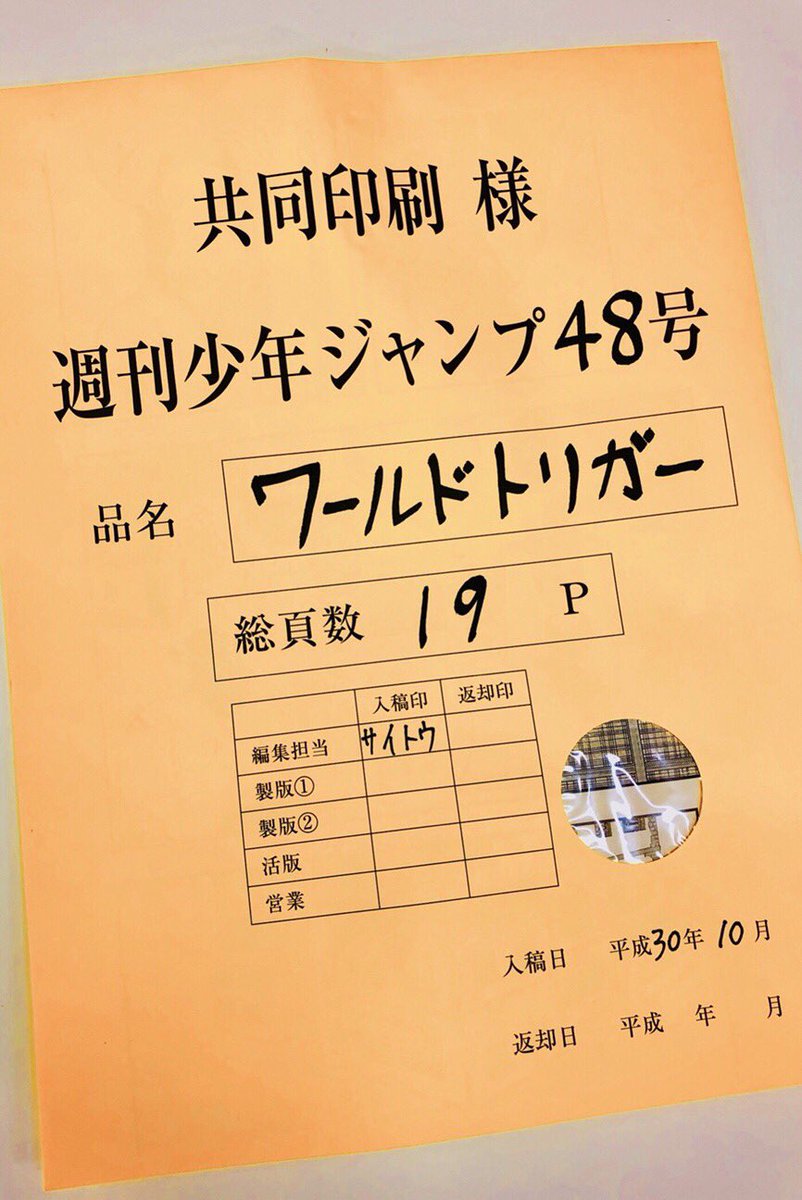 共同印刷 様
週刊少年ジャンプ48号
品名 ワールドトリガー
総頁数 19 P
入稿印 返却印
編集担当 サイトウ
製版①
製版②
活版
営業
入稿日 平成30年10月
返却日 平成 年 月